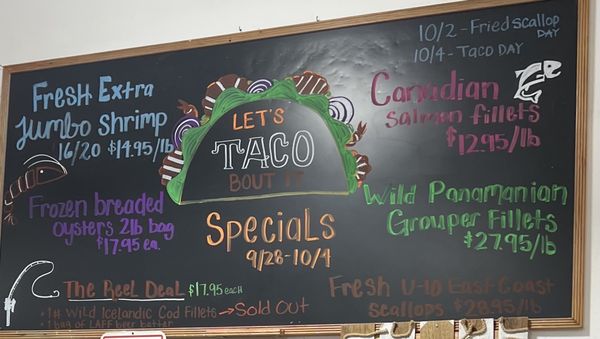 10/2 - Fried scallop
DAY
10/4 - Taco DAY
Fresh Extra
Jumbo Shrimp
16/20 $14.95/lb
LET'S
TACO
BOUT IT
Canadian
Salmon fillets
$12.95/lb
Frozen breaded
oysters 2lb bag
$17.95 ea.
Specials
9/28-10/4
Wild Panamanian
Grouper Fillets
$27.95/lb
The Reel Deal $17.95 each
• 1# Wild Icelandic Cod Fillets → Sold Out
• 1 bag of LAPF beer batter
Fresh U-10 East Coast
Scallops $29.95/lb